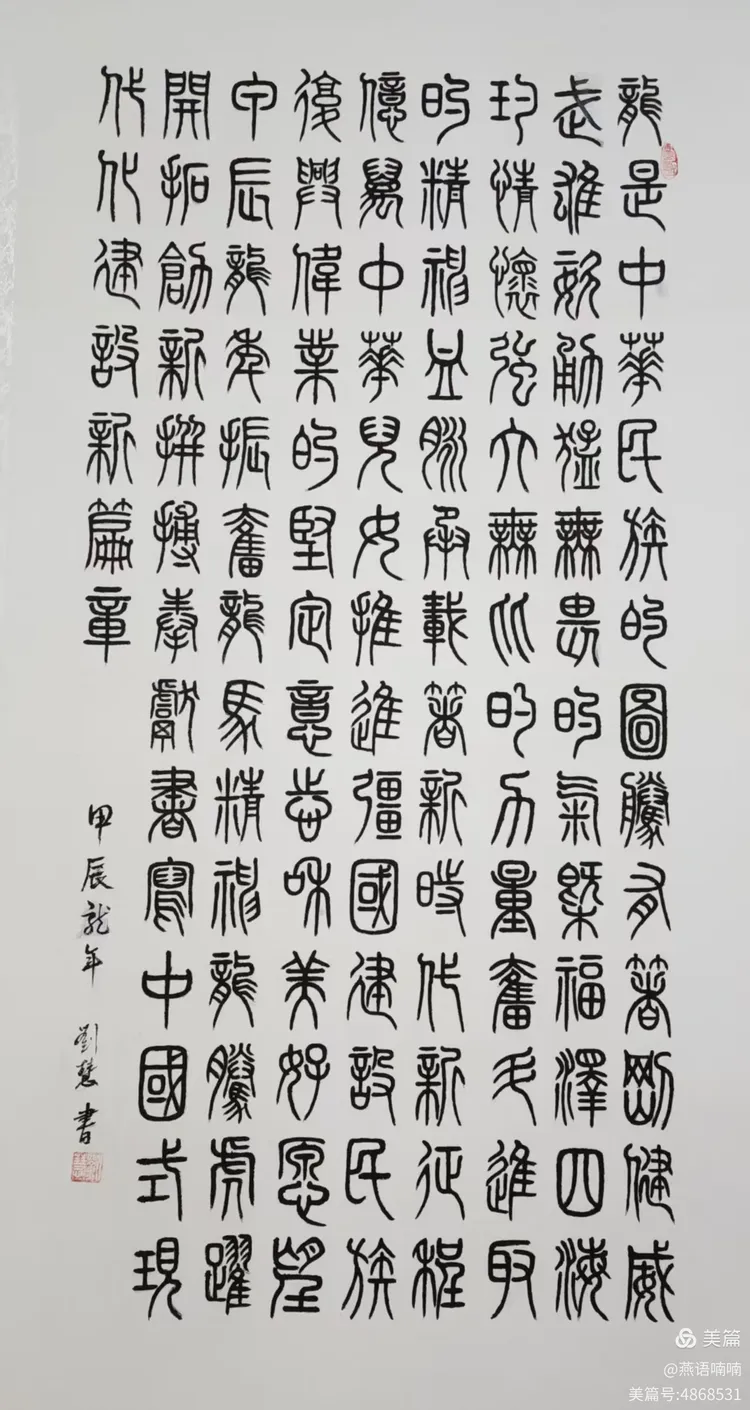 龍是中華民族的圖騰有着剛健威
武雄姿勇猛無畏的氣概福澤四海
情懷強大無比的力量奮進取
的精神血脉承載着新時代新征程
億萬中華兒女推進彊國建設民族
復興偉業的堅定意志和美好愿望
甲辰龍年振奮龍馬精神龍騰虎躍
開拓創新拼搏奉獻書寫中國式現
代化建設新篇章
甲辰龍年 劉慧書
美篇
@燕语喃喃
美篇号:4868531